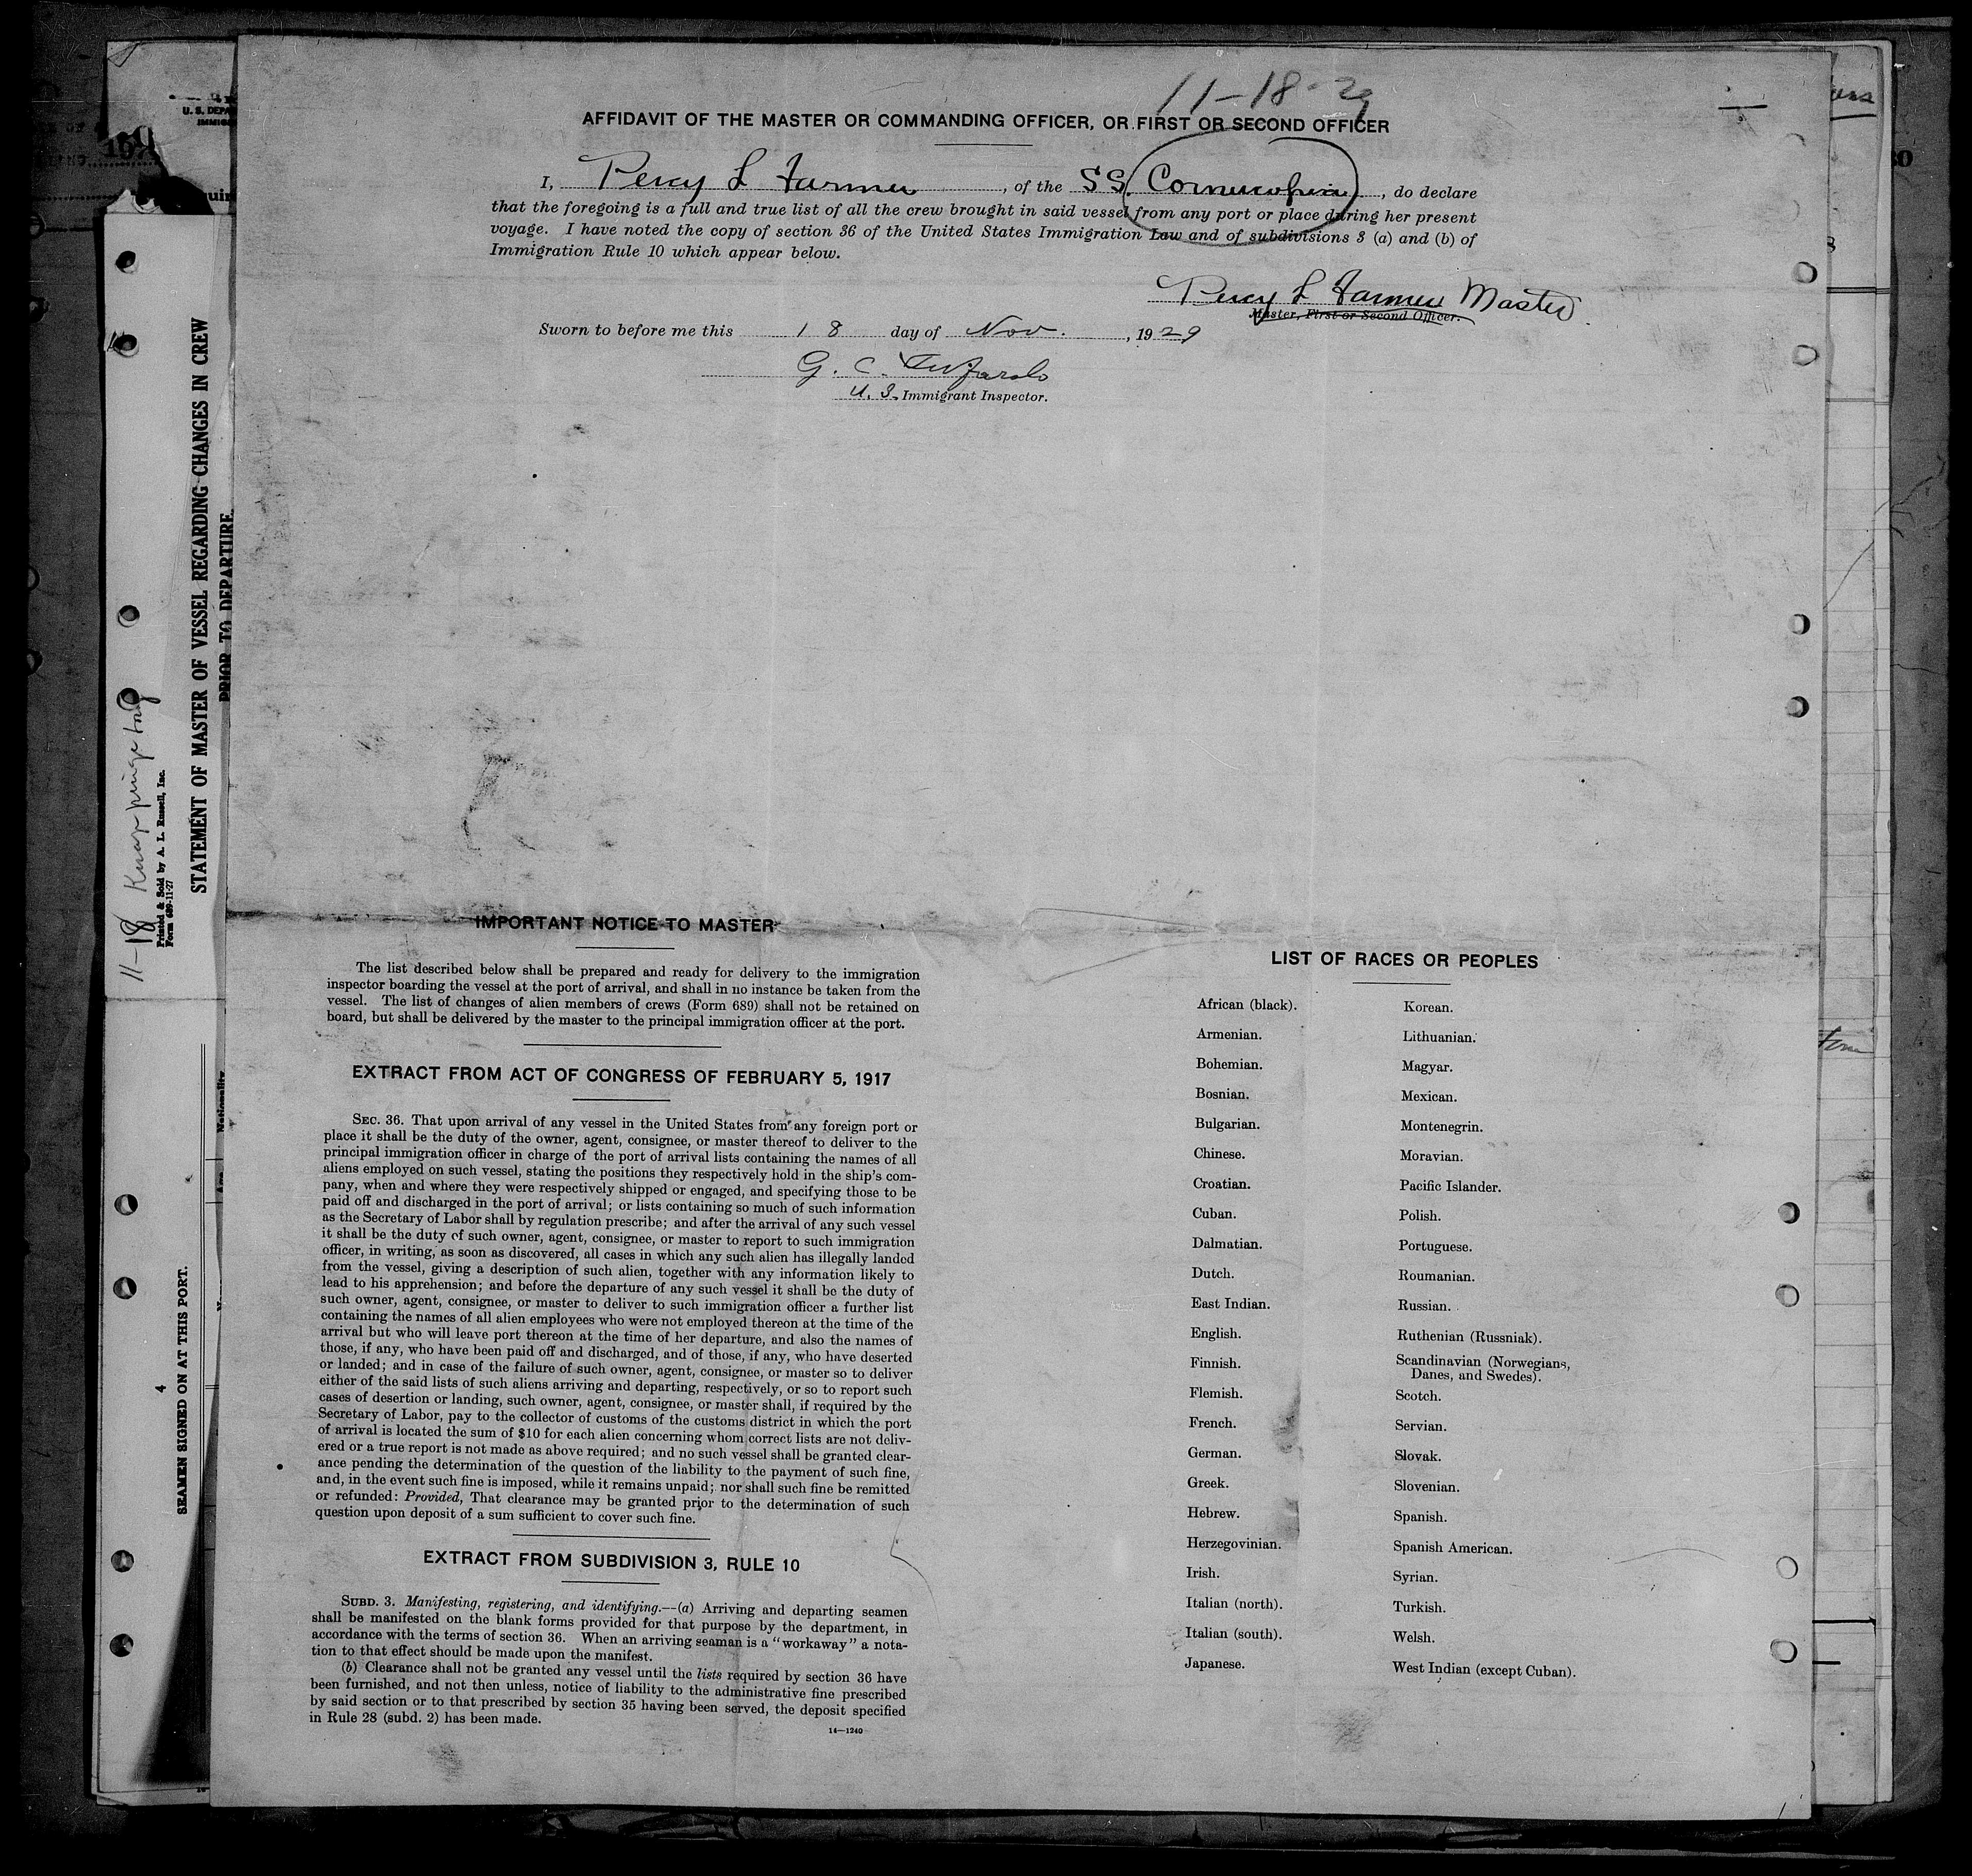 11-18-29
AFFIDAVIT OF THE MASTER OR COMMANDING OFFICER, OR FIRST OR SECOND OFFICER
I, Percy L Farmer, of the SS. Cornucopia, do declare
that the foregoing is a full and true list of all the crew brought in said vessel from any port or place during her present
voyage. I have noted the copy of section 36 of the United States Immigration Law and of subdivisions 3 (a) and (b) of
Immigration Rule 10 which appear below.
Percy L Farmer Master
Master, First or Second Officer.
Sworn to before me this 18 day of Nov., 1929
G. C.
U. S. Immigrant Inspector.
IMPORTANT NOTICE TO MASTER
The list described below shall be prepared and ready for delivery to the immigration
inspector boarding the vessel at the port of arrival, and shall in no instance be taken from the
vessel. The list of changes of alien members of crews (Form 689) shall not be retained on
board, but shall be delivered by the master to the principal immigration officer at the port.
EXTRACT FROM ACT OF CONGRESS OF FEBRUARY 5, 1917
SEC. 36. That upon arrival of any vessel in the United States from any foreign port or
place it shall be the duty of the owner, agent, consignee, or master thereof to deliver to the
principal immigration officer in charge of the port of arrival lists containing the names of all
aliens employed on such vessel, stating the positions they respectively hold in the ship's com-
pany, when and where they were respectively shipped or engaged, and specifying those to be
paid off and discharged in the port of arrival; or lists containing so much of such information
as the Secretary of Labor shall by regulation prescribe; and after the arrival of any such vessel
it shall be the duty of such owner, agent, consignee, or master to report to such immigration
officer, in writing, as soon as discovered, all cases in which any such alien has illegally landed
from the vessel, giving a description of such alien, together with any information likely to
lead to his apprehension; and before the departure of any such vessel it shall be the duty of
such owner, agent, consignee, or master to deliver to such immigration officer a further list
containing the names of all alien employees who were not employed thereon at the time of the
arrival but who will leave port thereon at the time of her departure, and also the names of
those, if any, who have been paid off and discharged, and of those, if any, who have deserted
or landed; and in case of the failure of such owner, agent, consignee, or master so to deliver
either of the said lists of such aliens arriving and departing, respectively, or so to report such
cases of desertion or landing, such owner, agent, consignee, or master shall, if required by the
Secretary of Labor, pay to the collector of customs of the customs district in which the port
of arrival is located the sum of $10 for each alien concerning whom correct lists are not deliv-
ered or a true report is not made as above required; and no such vessel shall be granted clear-
ance pending the determination of the question of the liability to the payment of such fine,
and, in the event such fine is imposed, while it remains unpaid; nor shall such fine be remitted
or refunded: Provided, That clearance may be granted prior to the determination of such
question upon deposit of a sum sufficient to cover such fine.
EXTRACT FROM SUBDIVISION 3, RULE 10
SUBD. 3. Manifesting, registering, and identifying.—(a) Arriving and departing seamen
shall be manifested on the blank forms provided for that purpose by the department, in
accordance with the terms of section 36. When an arriving seaman is a "workaway" a nota-
tion to that effect should be made upon the manifest.
(b) Clearance shall not be granted any vessel until the lists required by section 36 have
been furnished, and not then unless, notice of liability to the administrative fine prescribed
by said section or to that prescribed by section 35 having been served, the deposit specified
in Rule 28 (subd. 2) has been made.
14—1240
LIST OF RACES OR PEOPLES
African (black).
Armenian.
Bohemian.
Bosnian.
Bulgarian.
Chinese.
Croatian.
Cuban.
Dalmatian.
Dutch.
East Indian.
English.
Finnish.
Flemish.
French.
German.
Greek.
Hebrew.
Herzegovinian.
Irish.
Italian (north).
Italian (south).
Japanese.
Korean.
Lithuanian.
Magyar.
Mexican.
Montenegrin.
Moravian.
Pacific Islander.
Polish.
Portuguese.
Roumanian.
Russian.
Ruthenian (Russniak).
Scandinavian (Norwegians,
Danes, and Swedes).
Scotch.
Servian.
Slovak.
Slovenian.
Spanish.
Spanish American.
Syrian.
Turkish.
Welsh.
West Indian (except Cuban).
11-18
Printed & Sold by A. L. Russell, Inc.
Form 689-11-27
STATEMENT OF MASTER OF VESSEL REGARDING CHANGES IN CREW
PRIOR TO DEPARTURE.
4
SEAMEN SIGNED ON AT THIS PORT.
Nationality
Age